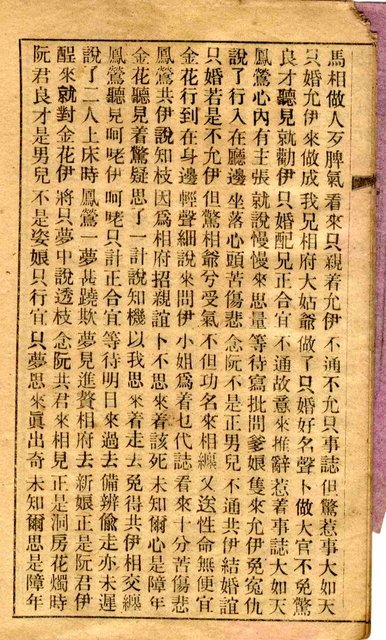 馬相做人歹脾氣　看來只親着允伊　不通不允只事誌　但驚惹事大如天
只婚允伊來做成　我兄相府大姑爺　做了只婚好名聲　卜做大官不免驚
良才聽見就勸伊　只婚配兄正合宜　不通故意來推辭　惹着事誌大如天
鳳鶯心內有主張　就說慢慢來思量　等待寫批問爹娘　隻來允伊免冤仇
說了行入在廳邊　坐落心頭苦傷悲　念阮不是正男兒　不通共伊結婚誼
只婚若是不允伊　但驚相爺兮受氣　不但功名來相纏　又送性命無便宜
金花行到在身邊　輕聲細說來問伊　小姐爲着乜代誌　看來十分苦傷悲
鳳鶯共伊說知枝　因爲相府招親誼　卜不思來着該死　未知爾心是障年
金花聽見着驚疑　思了一計說知機　以我思來着走去　免得共伊相交纏
鳳鶯聽見呵咾伊　呵咾只計正合宜　等待明日來過去　備辨偷走亦未遲
說了二人上床時　鳳鶯一夢甚蹺欺　夢見進贅相府去　新娘正是阮君伊
醒來就對金花伊　將只夢中說透枝　念阮共君來相見　正是洞房花燭時
阮君良才是男兒　不是姿娘只行宜　只夢思來眞出奇　未知爾思是障年